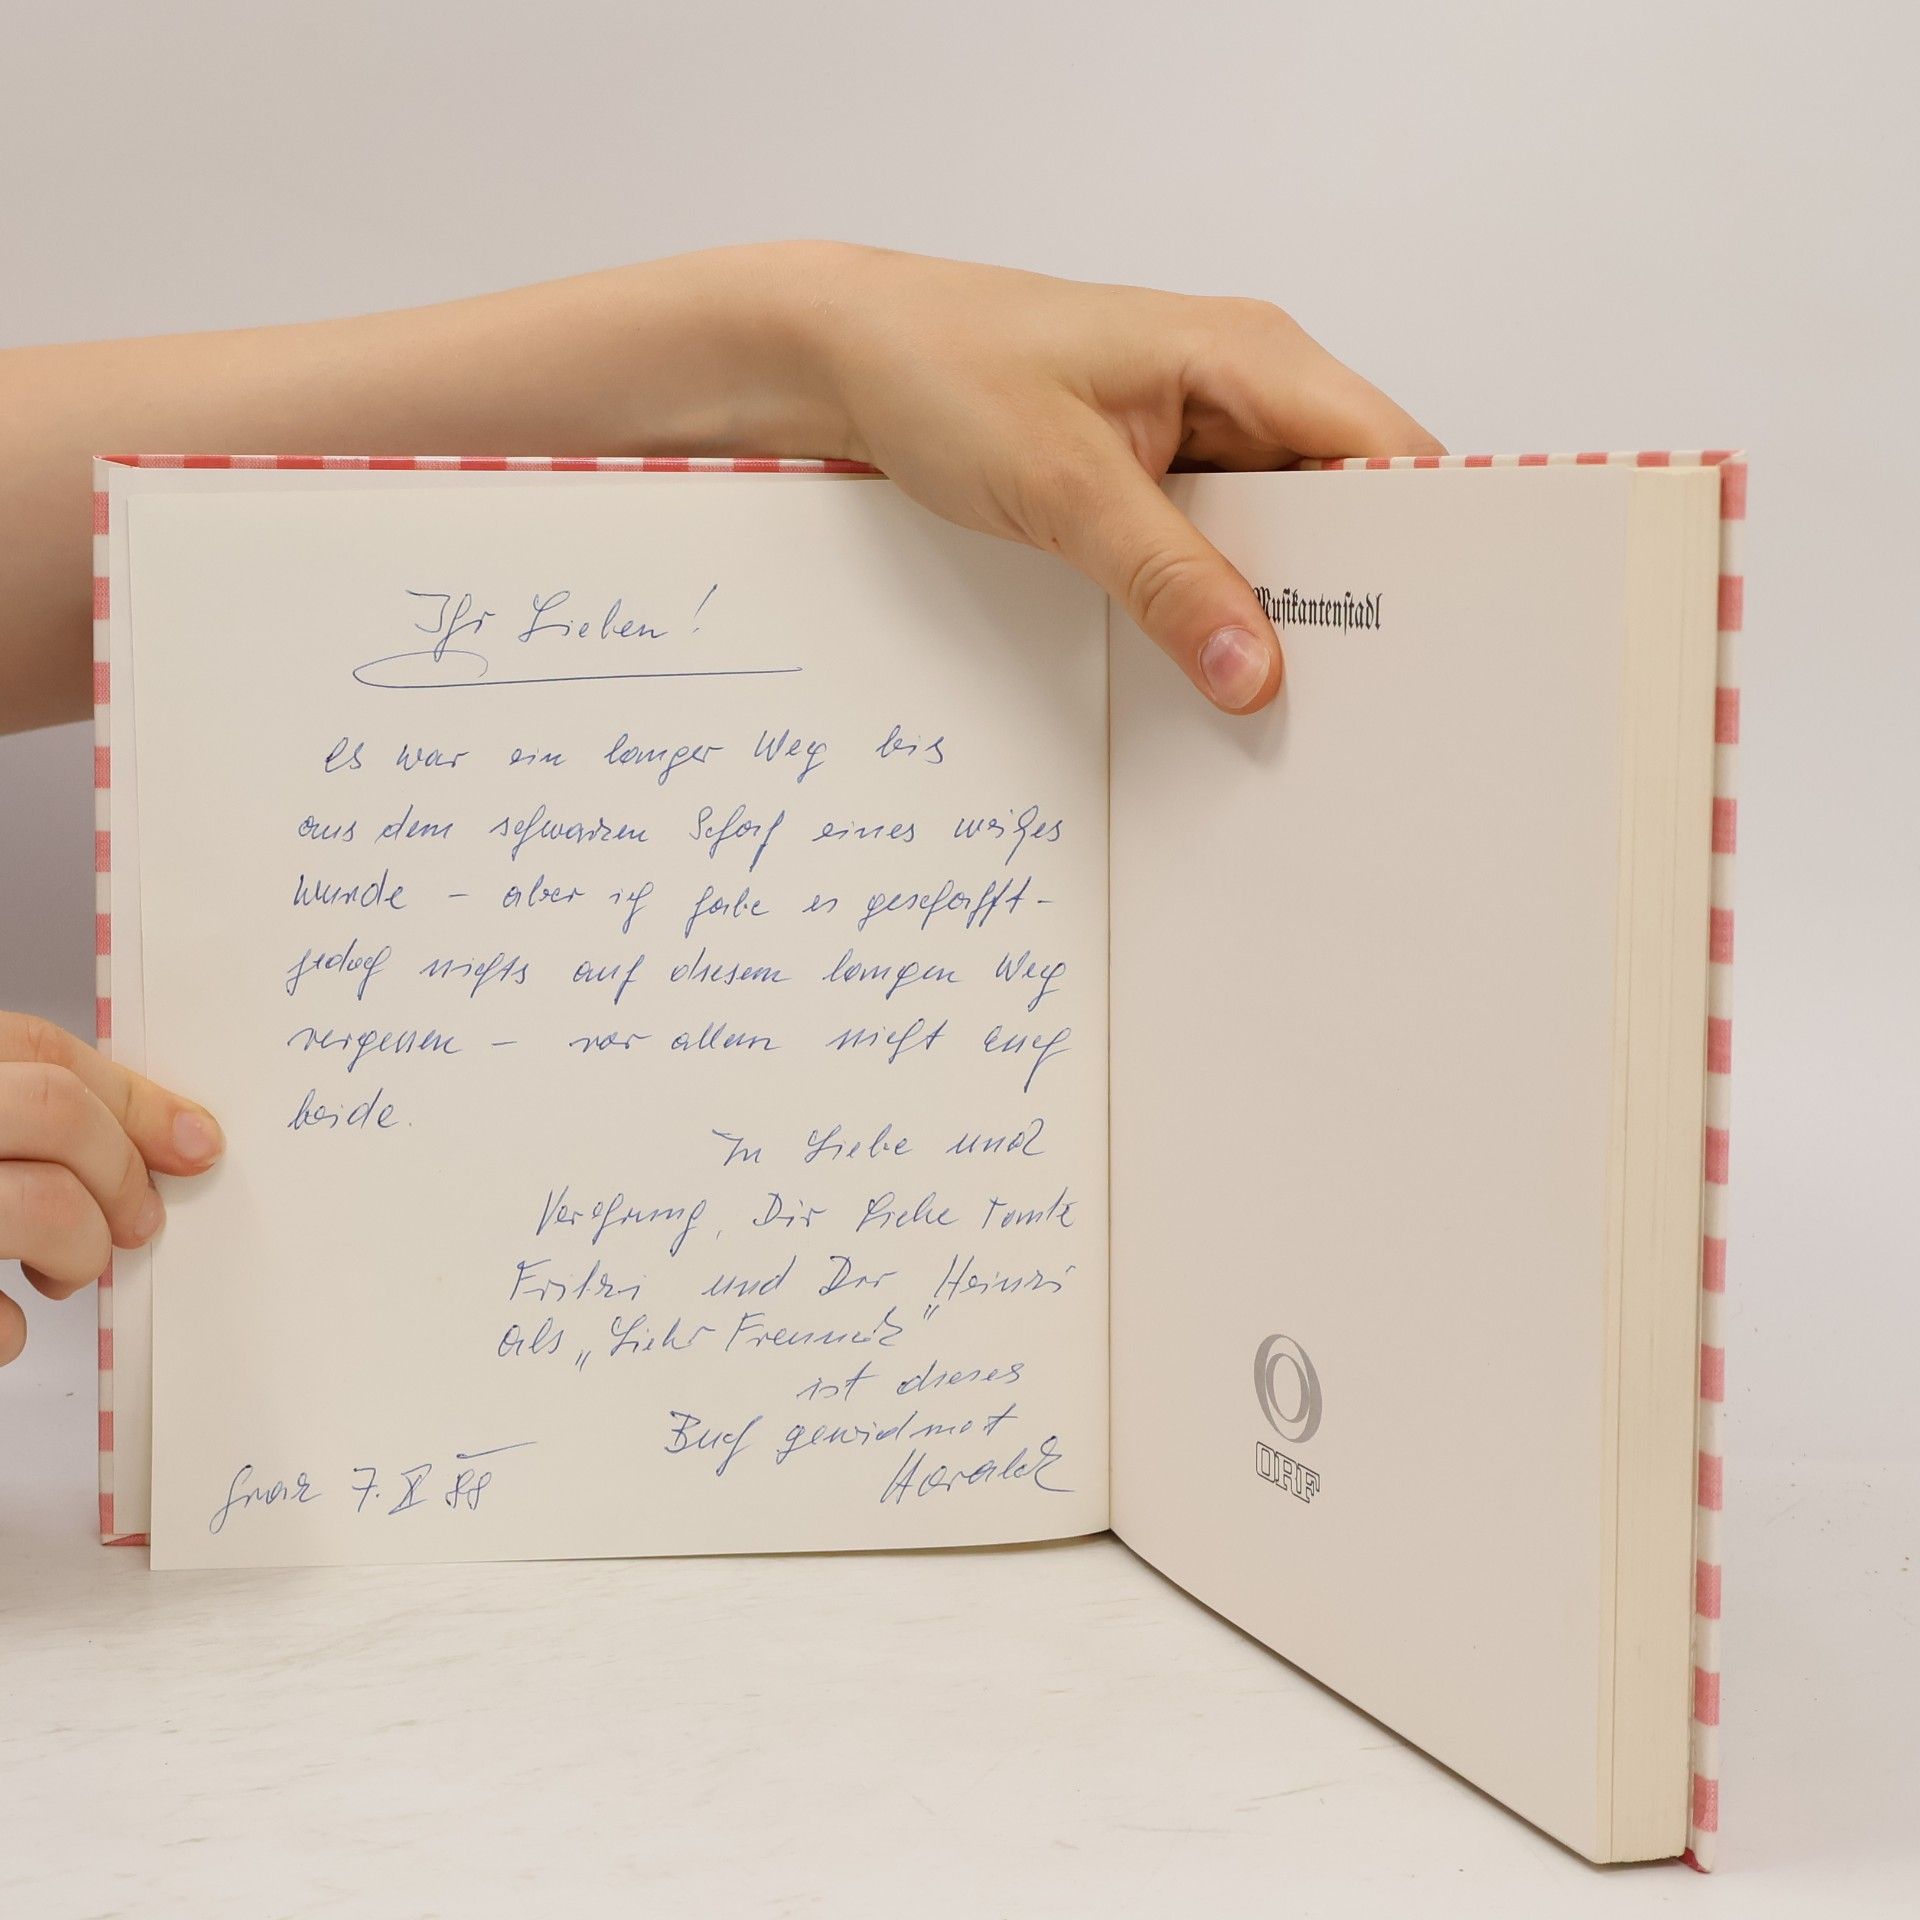 Ihr Lieben!
Es war ein langer Weg bis
aus dem schwarzen Schaf eines weißes
wurde – aber ich habe es geschafft –
jedoch nichts auf diesem langen Weg
vergessen – vor allem nicht Euch
beide.
In Liebe und
Verehrung, Dir liebe Tante
Fritzi und Dir Heinzi
als „Lieber Freund“
ist dieses
Buch gewidmet
Harald
Graz 7. X 88
Musikantenstadl
ORF